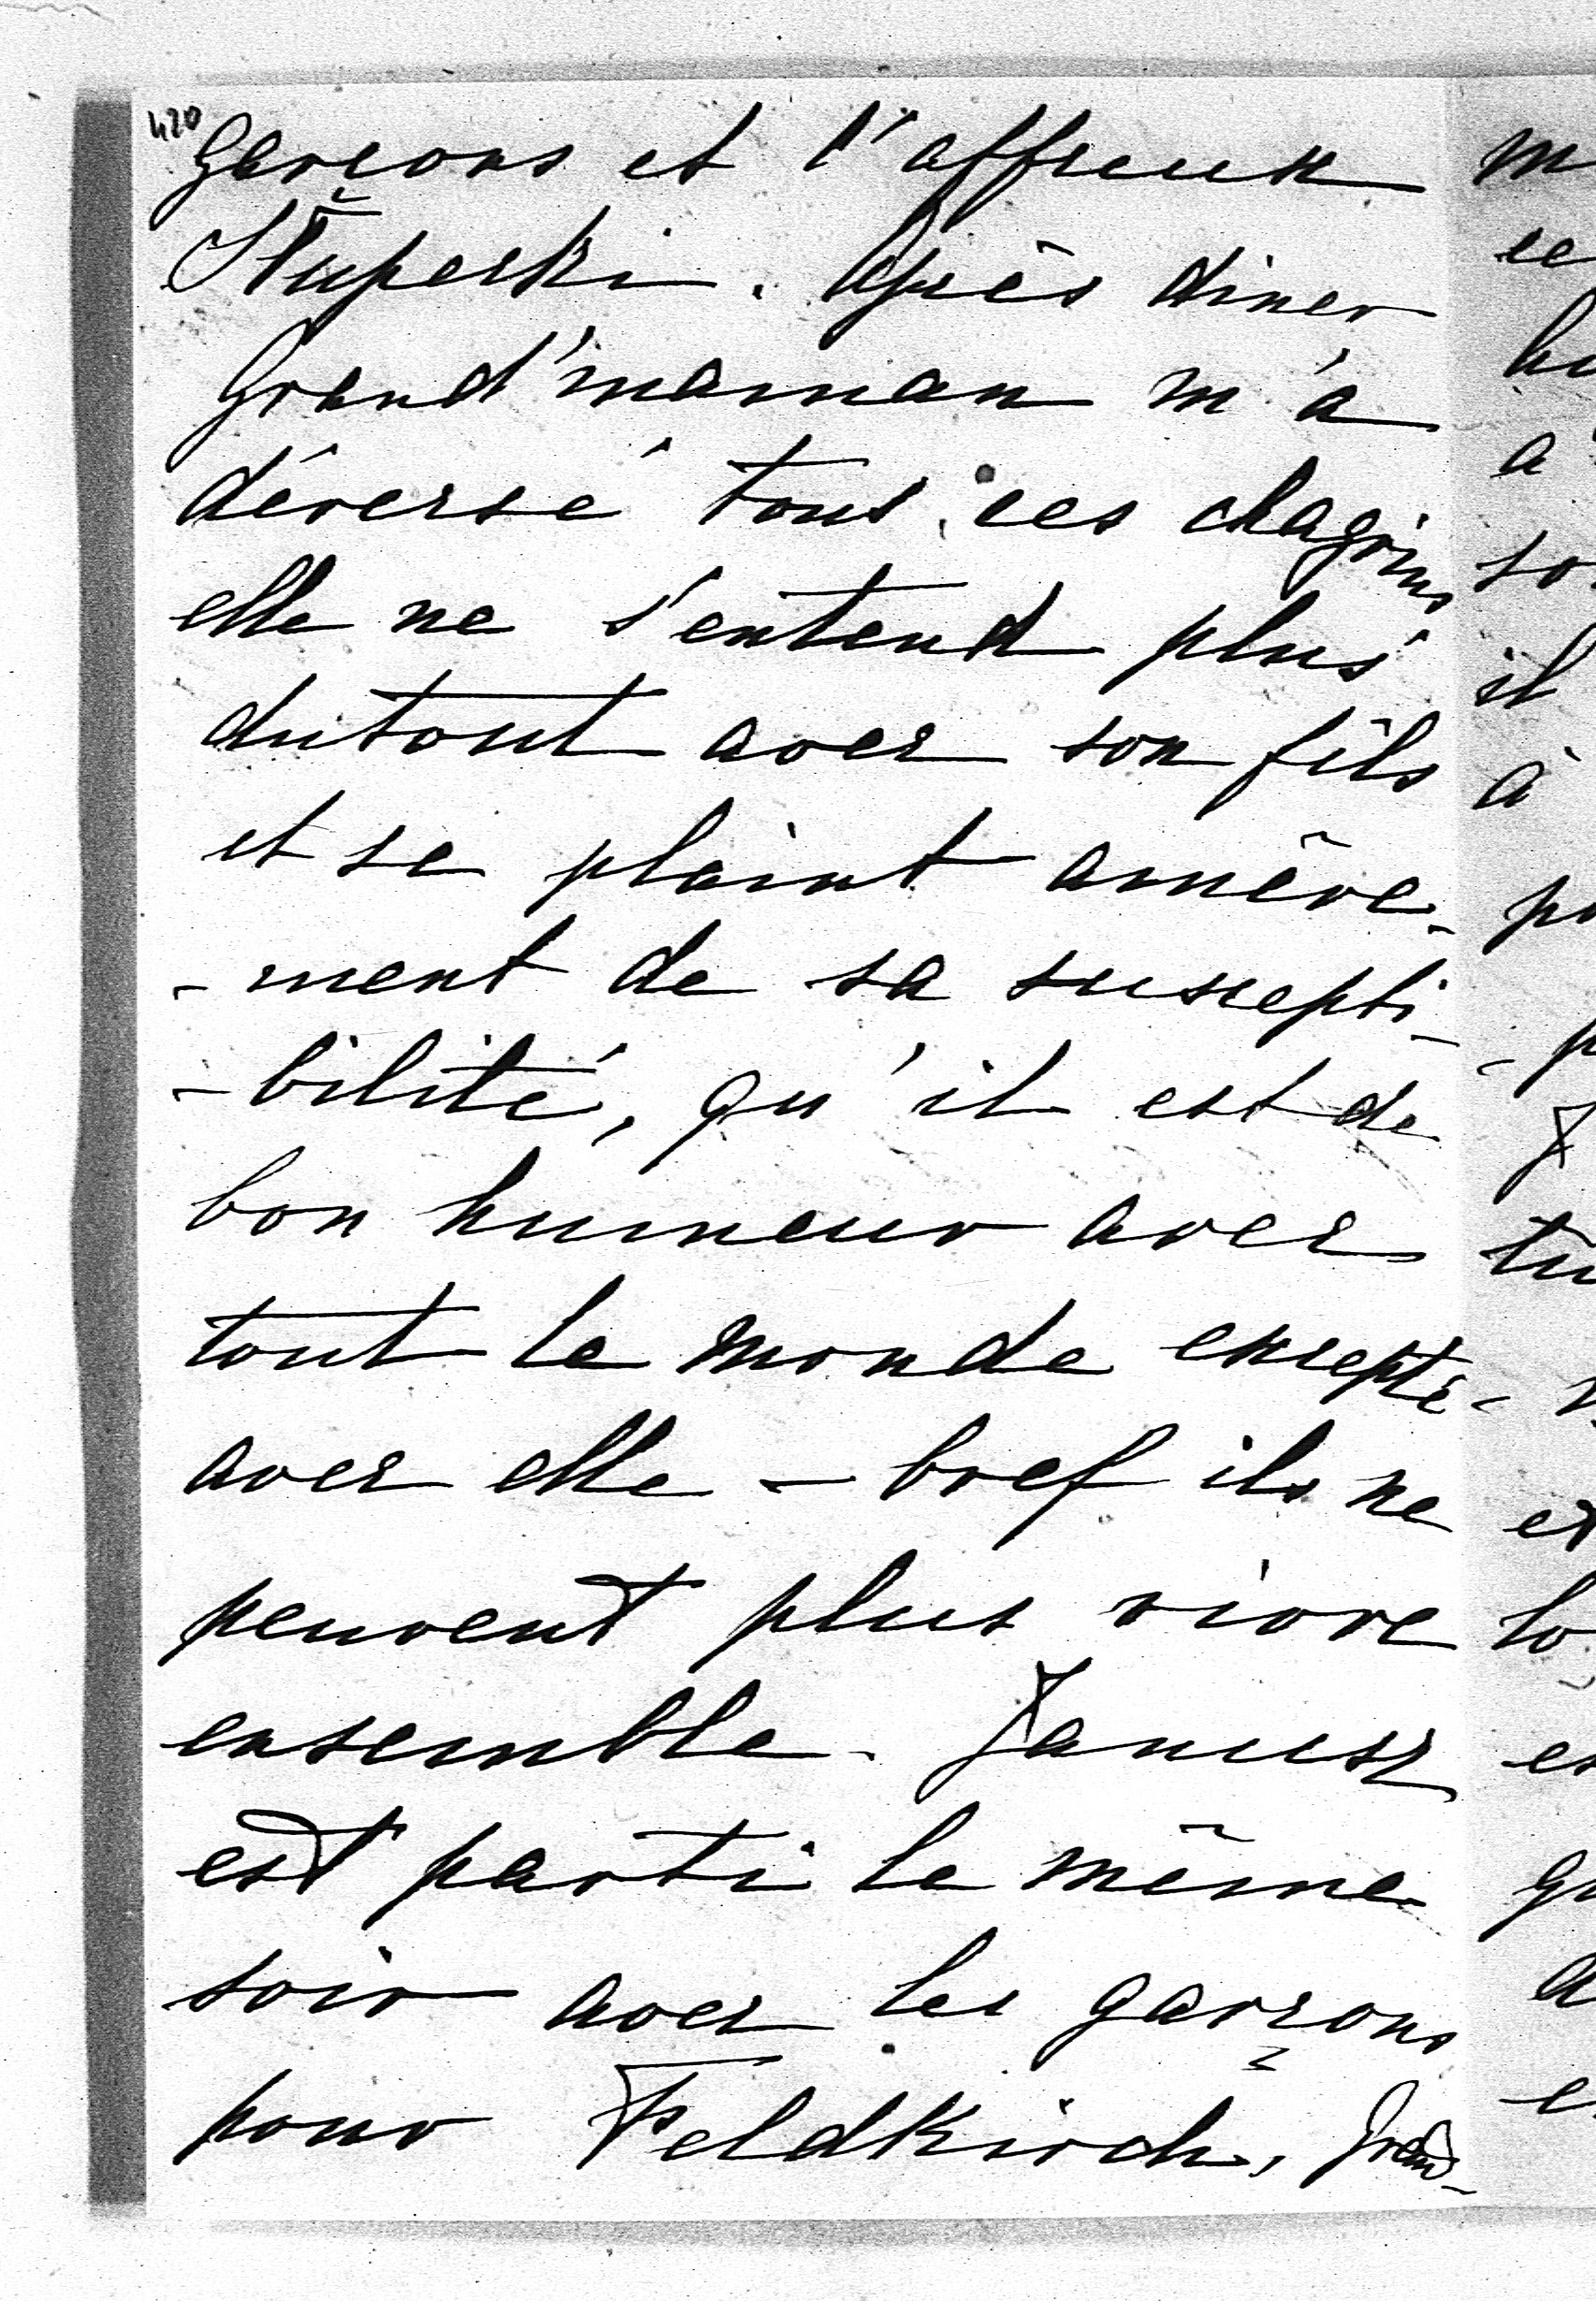 420
Garçons et l'affreux
Słuperki. Après diner
Grand'maman m'a
déversé tous ces chagrins
elle ne s'entend plus
dutout avec son fils
et se plaint amère-
-ment de sa suscepti-
-bilité, qu'il est de
bon humeur avec
tout le monde excepté
avec elle – bref ils ne
peuvent plus vivre
ensemble. Janusz
est parti le même
soir avec les garçons
pour Feldkirch, Grand-